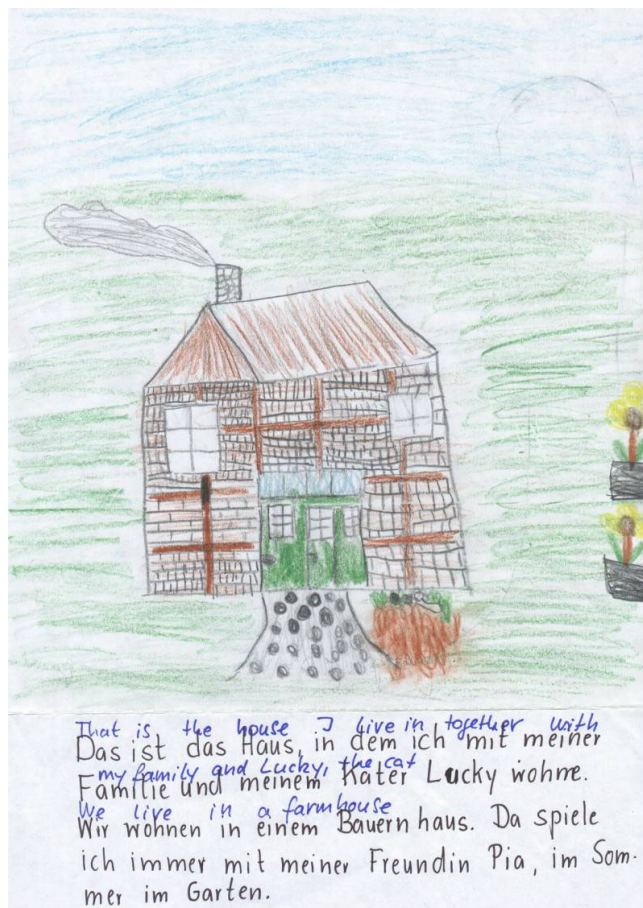 That is the house I live in together with
Das ist das Haus, in dem ich mit meiner
my family and Lucky, the cat
Familie und meinem Kater Lucky wohne.
We live in a farmhouse
Wir wohnen in einem Bauernhaus. Da spiele
ich immer mit meiner Freundin Pia, im Som-
mer im Garten.